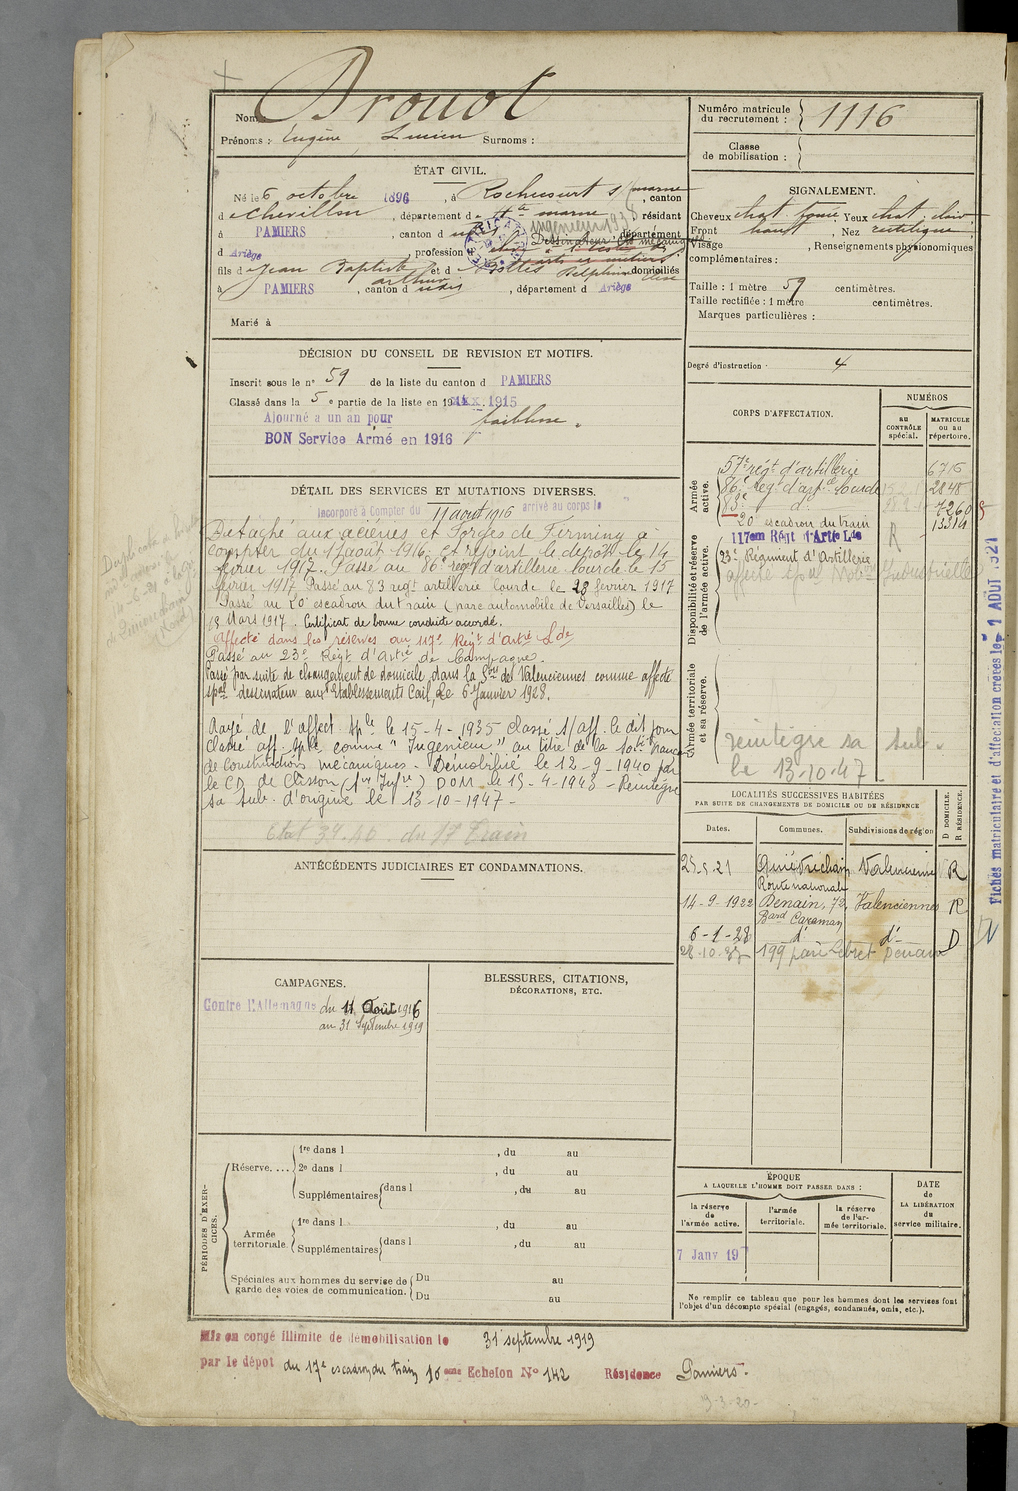 Nom Drouot
Prénoms : Eugène Lucien Surnoms :
Numéro matricule du recrutement : 1116
Classe de mobilisation :
ÉTAT CIVIL.
Né le 6 octobre 1896, à Rochecourt s/ marne, canton
d e Chevillon, département d e Hte marne résidant
à PAMIERS, canton d département
d Ariège, profession Dessinateur
ingénieur
arts et métiers
fils d e Jean Baptiste Arthur et d domiciliés
à PAMIERS, canton d udis, département d Ariège
Marié à
SIGNALEMENT.
Cheveux chat. foncé Yeux chat. clair
Front haut, Nez rectiligne
Visage, Renseignements physionomiques
complémentaires :
Taille : 1 mètre 59 centimètres.
Taille rectifiée : 1 mètre centimètres.
Marques particulières :
Degré d'instruction : 4
DÉCISION DU CONSEIL DE REVISION ET MOTIFS.
Inscrit sous le no 59 de la liste du canton d PAMIERS
Classé dans la 5 e partie de la liste en 1915
Ajourné a un an pour faiblesse
BON Service Armé en 1916
CORPS D'AFFECTATION.
NUMÉROS
AU CONTRÔLE spécial.
MATRICULE ou au répertoire.
Armée active.
57e régt d'artillerie 6716
86e régt d'artie lourde 2848
83e d° 7260
20 escadron du train 13314
Disponibilité et réserve de l'armée active.
117em Régt d'Artie Lde R
23e Régiment d'Artillerie
Affecté spal Industrielle
Armée territoriale et sa réserve.
réintégré sa sub.
le 13.10.47
Fiches matriculaire et d'affectation créées le 1 AOUT 1921
DÉTAIL DES SERVICES ET MUTATIONS DIVERSES.
Incorporé à Compter du 11 août 1916 arrivé au corps le
Détaché aux aciéries et Forges de Firminy à
compter du 11 août 1916 et rejoint le dépôt le 14
février 1917. Passé au 86e régt d'artillerie lourde le 15
février 1917 Passé au 83 regt artillerie lourde le 28 février 1917
Passé au 20e escadron du train (parc automobile de Versailles) le
18 Mars 1917. Certificat de bonne conduite accordé.
Affecté dans les réserves au 117e Régt d'Artie Lde
Passé au 23e Régt d'Artie de Campagne.
Passé par suite de changement de domicile, dans la Son de Valenciennes comme affecté
spal dessinateur aux Etablissements Cail, le 6 Janvier 1928.
Rayé de l'affect. sple le 15-4-1935 classé s/aff. le dit jour
Classé aff. sple comme "Ingénieur" au titre de la
de constructions mécaniques. Démobilisé le 12-9-1940 par
le CD de Clisson DOM le 15-4-1943 - Réintégré
sa sub. d'origine le 13-10-1947 -
Etat 39.40 du 1er Train
LOCALITÉS SUCCESSIVES HABITÉES
PAR SUITE DE CHANGEMENTS DE DOMICILE OU DE RÉSIDENCE
Dates. Communes. Subdivisions de région D DOMICILE. R RÉSIDENCE.
25.5.21 Quiévrechain Valenciennes R
Route nationale
14-9-1922 Denain, 72, Valenciennes R
Bard Caraman
6-1-28 d° d° D
199 Denain
ANTÉCÉDENTS JUDICIAIRES ET CONDAMNATIONS.
CAMPAGNES.
Contre l'Allemagne du 11 Août 1916
au 31 Septembre 1919
BLESSURES, CITATIONS,
DÉCORATIONS, ETC.
PÉRIODES D'EXERCICES.
Réserve....
1re dans l , du au
2e dans l , du au
Supplémentaires dans l , du au
Armée territoriale.
1re dans l , du au
Supplémentaires dans l , du au
Spéciales aux hommes du service de garde des voies de communication.
Du au
Du au
ÉPOQUE
A LAQUELLE L'HOMME DOIT PASSER DANS :
la réserve de l'armée active.
l'armée territoriale.
la réserve de l'armée territoriale.
DATE DE LA LIBÉRATION du service militaire.
7 Janv 19
Ne remplir ce tableau que pour les hommes dont les services font
l'objet d'un décompte spécial (engagés, condamnés, omis, etc.).
Mis en congé illimité de démobilisation le 31 septembre 1919
par le dépot du 17e escadron du train 16eme Echelon No 142 Résidence Pamiers.
9-3-20-